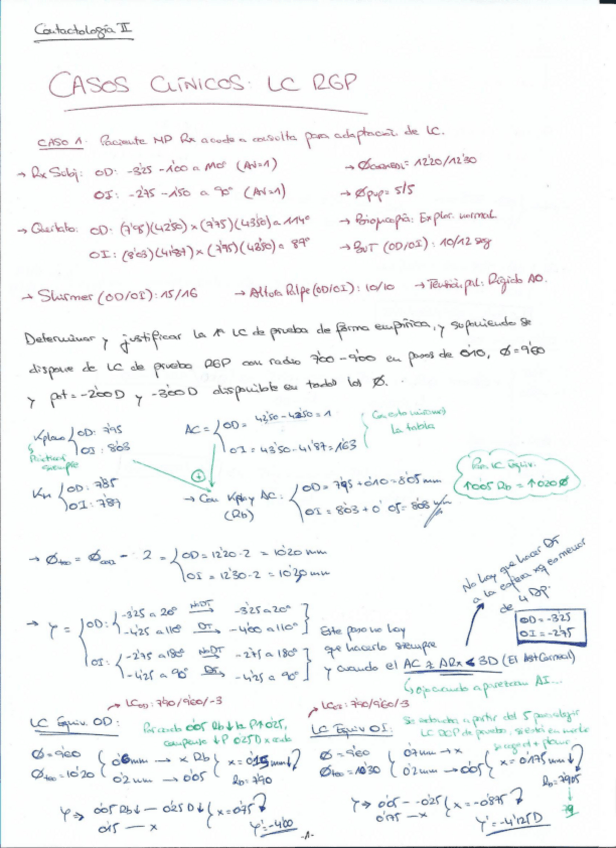 Contactología II
CASOS CLÍNICOS: LC RGP
CASO 1: Paciente MP Rx acude a consulta para adaptación de LC.
→ Rx Subj: OD: -3'25 -1'00 a 110° (AV=1)
→ Øcorneal = 12'20/12'30
OI: -2'75 -1'50 a 90° (AV=1)
→ Øpup = 5/5
→ Querato: OD: (7'95)(42'50) x (7'75)(43'50) a 114°
→ Biomicroscopía: Explor. normal.
OI: (8'03)(41'87) x (7'75)(43'50) a 89°
→ BUT (OD/OI): 10/12 seg
→ Shirmer (OD/OI): 15/16
→ Altura Palpe (OD/OI): 10/10
→ Tensión pal: Rígido AO.
Determinar y justificar la 1ª LC de prueba de forma empírica, y suponiendo se
dispone de LC de prueba RGP con radio 7'00 - 9'00 en pasos de 0'10, Ø=9'60
y pot = -2'00D y -3'00D disponible en todos los Ø.
Kplano { OD: 7'95
OI: 8'03
siempre
AC = { OD = 42'50 - 43'50 = 1
OI = 43'50 - 41'87 = 1'63
la tabla
Km { OD: 7'85
OI: 7'89
→ Con Kpl y AC: (Rb)
{ OD = 7'95 + 0'10 = 8'05 mm
OI = 8'03 + 0'05 = 8'08 mm
Para LC Equiv.
↑0'05 Rb = ↑0'20 Ø
→ Ø = Ø - 2 = { OD = 12'20 - 2 = 10'20 mm
OI = 12'30 - 2 = 10'30 mm
No hay que hacer DV
a la esfera xq es menor
de 4 DP.
OD = -3'25
OI = -2'75
→ Y = { OD: { -3'25 a 20° → -3'25 a 20°
-4'25 a 110° → -4'00 a 110°
OI: { -2'75 a 180° → -2'75 a 180°
-4'25 a 90° → -4'25 a 90°
Este paso no hay
que hacerlo siempre
y cuando el AC ≥ ARx ≤ 3D (El Ast Corneal)
↳ ojo cuando aparezcan AI...
→ LC OD: 7'90/9'60/-3
→ LC OI: 7'90/9'60/-3
LC Equiv OD:
Por cada 0'05 Rb ↓ la P ↑ 0'25,
LC Equiv OI:
Ø = 9'60
Ø = 10'20
{ 0'6 mm → x Rb
0'2 mm → 0'05 } x = 0'15 mm ↓
Rb = 7'90
Ø = 9'60
Ø = 10'30
{ 0'7 mm → x
0'2 mm → 0'05 } x = 0'175 mm ↓
Rb = 7'905
7'9
Y → 0'05 Rb ↓ — 0'25 D ↓
0'15 — x } x = 0'75
Y' = -4'00
Y → 0'05 — -0'25
0'175 — x } x = -0'875
Y' = -4'125 D
-1-